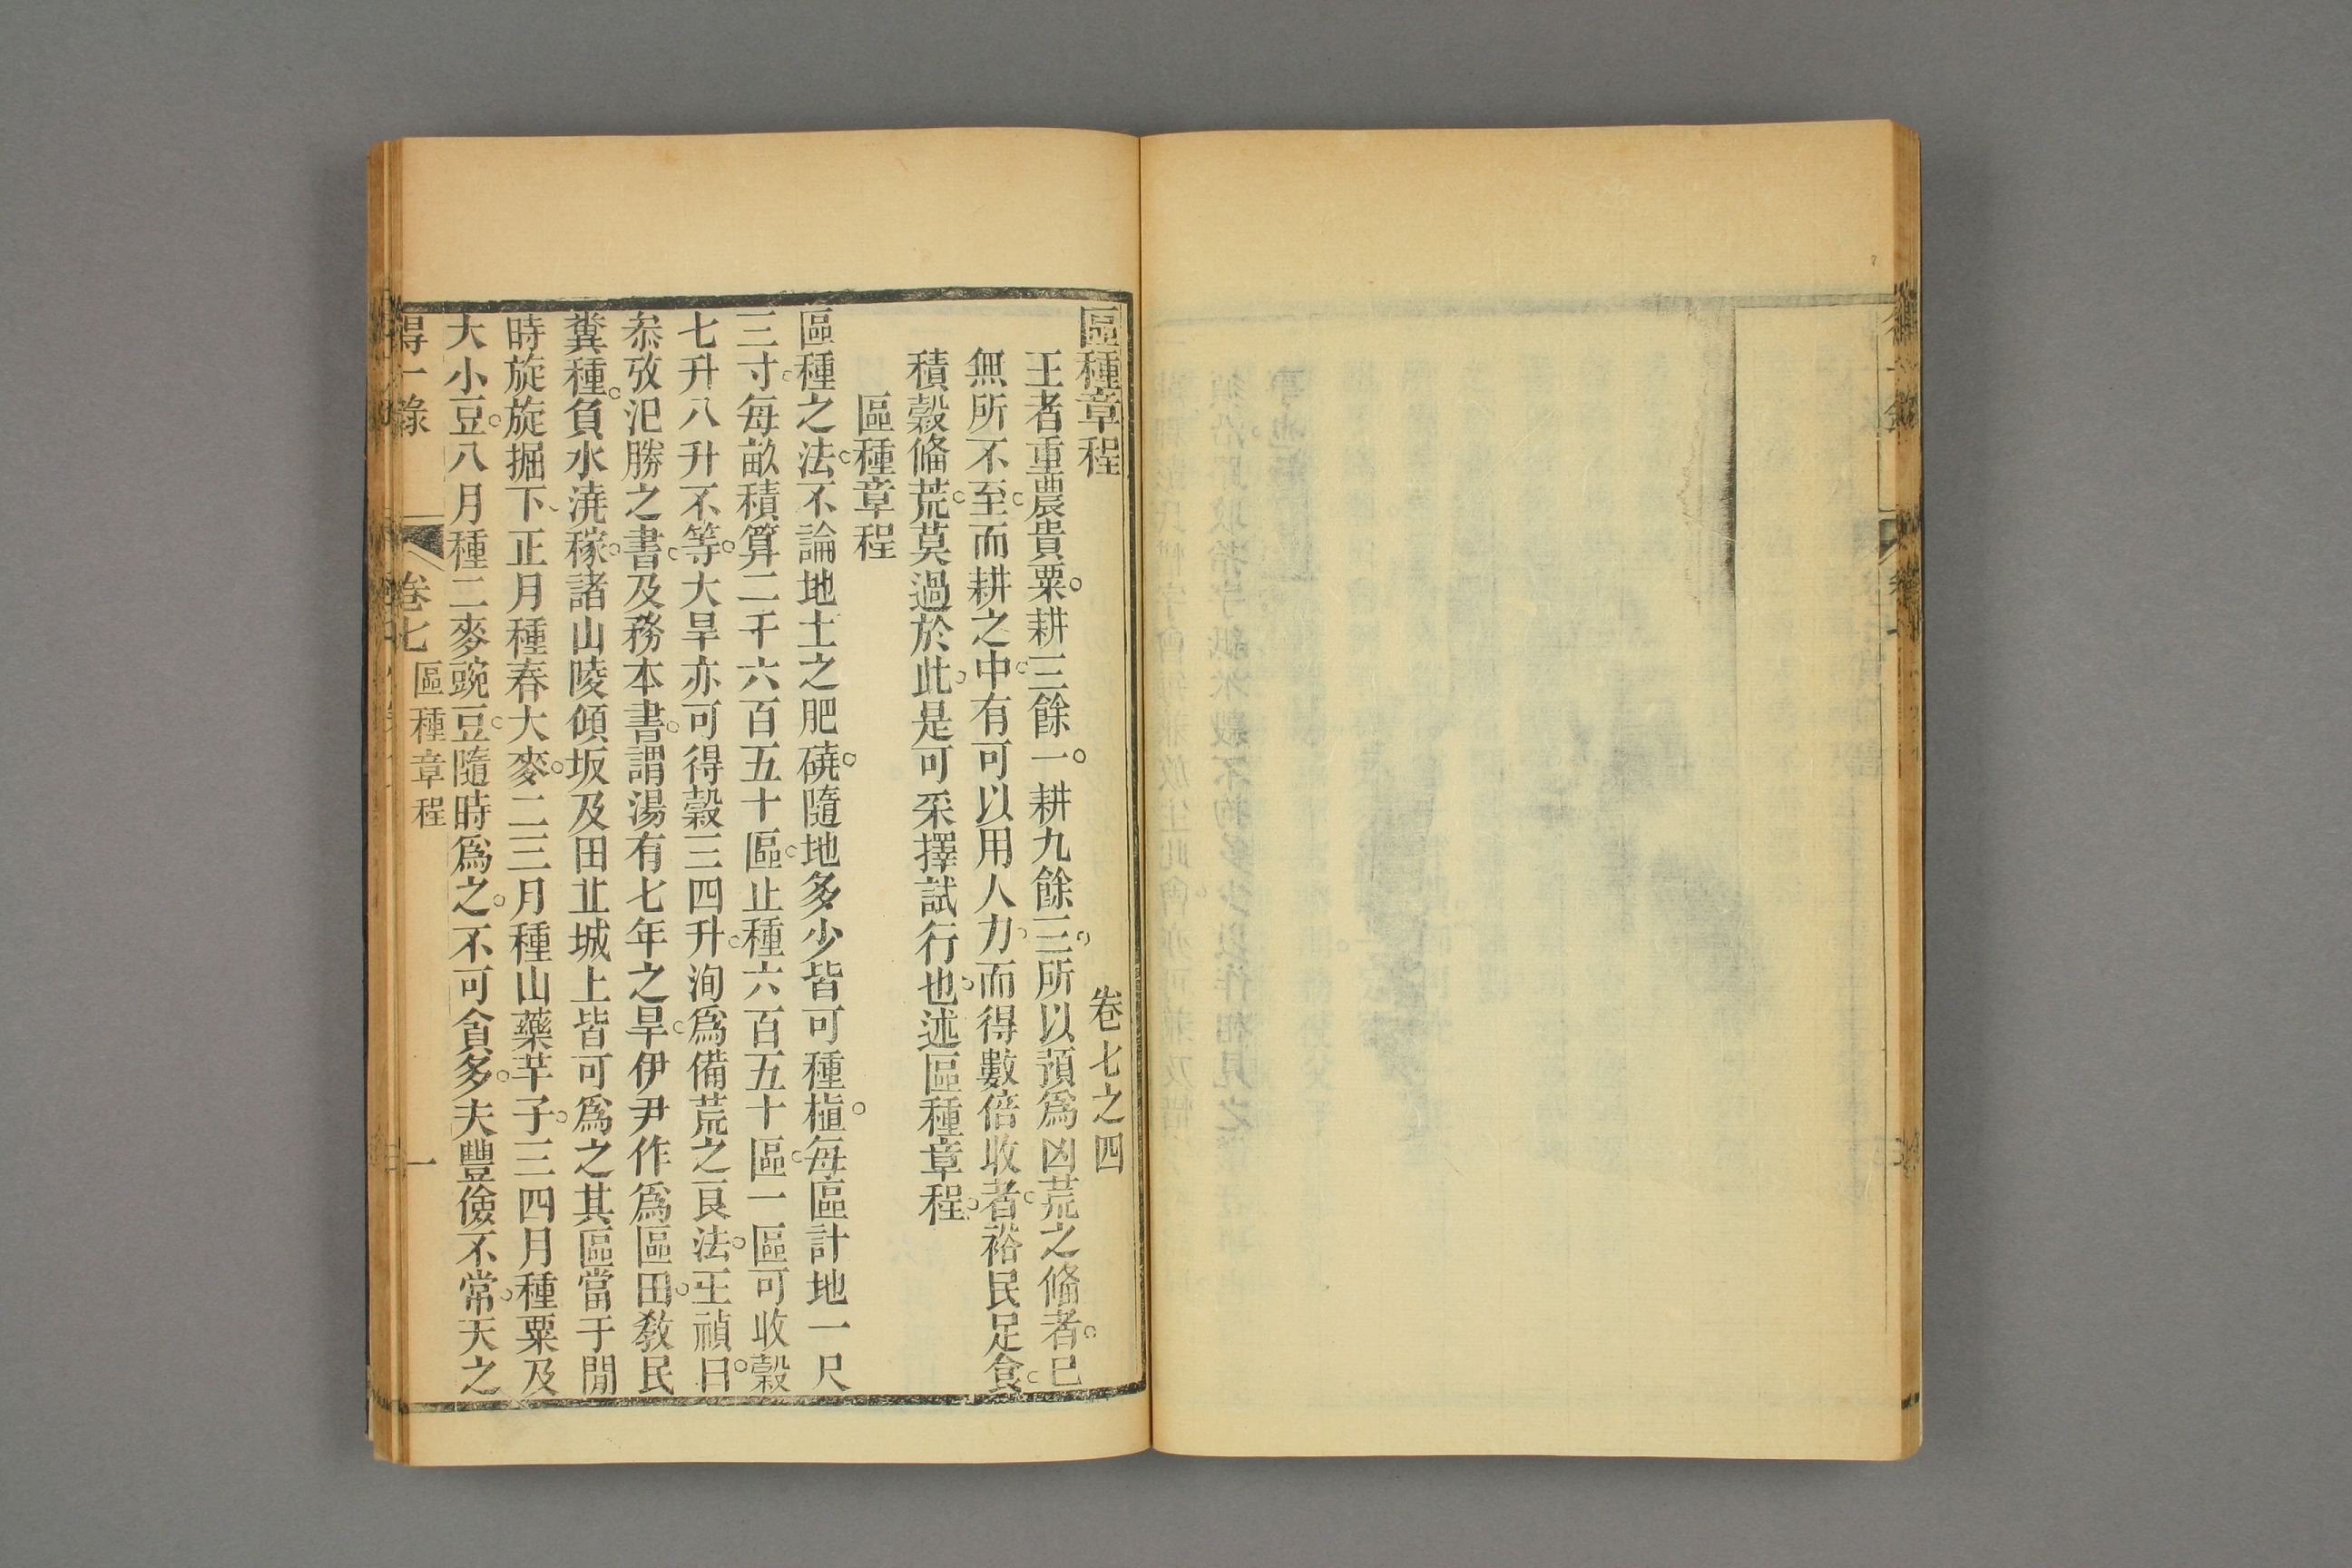 區種章程　卷七之四
王者重農貴粟。耕三餘一。耕九餘三。所以預爲凶荒之偹者。已
無所不至。而耕之中。有可以用人力。而得數倍收者。裕民足食。
積穀偹荒。莫過於此。是可采擇試行也。述區種章程。
區種章程
區種之法。不論地土之肥磽。隨地多少皆可種植。每區計地一尺
三寸。每畝積算二千六百五十區。止種六百五十區。一區可收穀
七升八升不等。大旱亦可得穀三四升。洵爲備荒之良法。王禎曰。
叅攷氾勝之書。及務本書。謂湯有七年之旱。伊尹作爲區田。敎民
糞種。負水澆稼。諸山陵傾坂及田丠城上皆可爲之。其區當于閒
時旋旋掘下。正月種春大麥。二三月種山藥芋子。三四月種粟及
大小豆。八月種二麥豌豆。隨時爲之。不可貪多。夫豐儉不常。天之
得一錄　卷七　區種章程　一